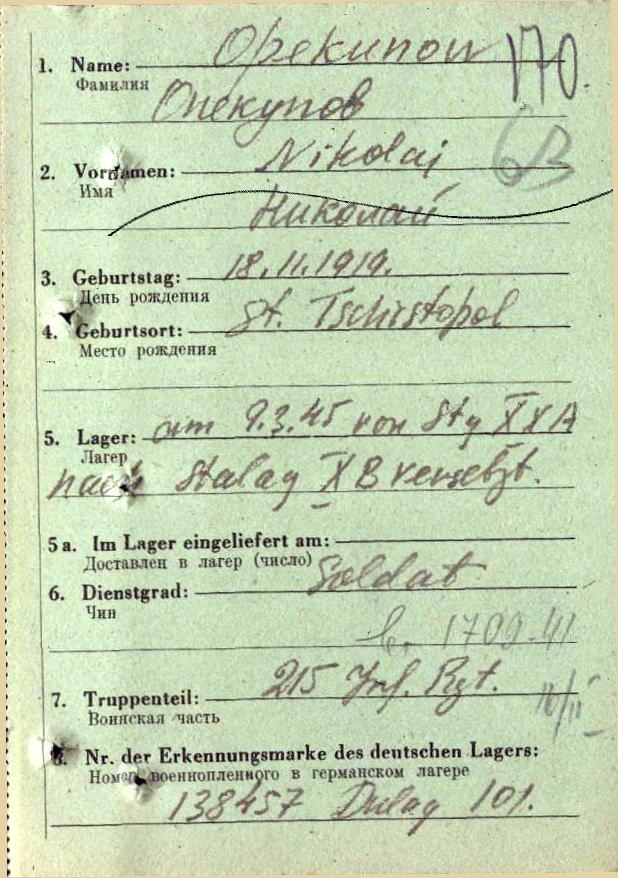 1. Name: Opekunow 170.
Фамилия Опекунов
63
2. Vornamen: Nikolai
Имя
Николай
3. Geburtstag: 18.11.1919.
День рождения
4. Geburtsort: St. Tschistopol
Место рождения
5. Lager: am 9.3.45 von Stg XX A
Лагер
nach Stalag X B versetzt.
5 a. Im Lager eingeliefert am:
Доставлен в лагер (число)
6. Dienstgrad: Soldat
Чин
1709.41
7. Truppenteil: 215 Inf. Rgt.
Воинская часть
8. Nr. der Erkennungsmarke des deutschen Lagers:
Номер военнопленного в германском лагере
138457 Dulag 101.